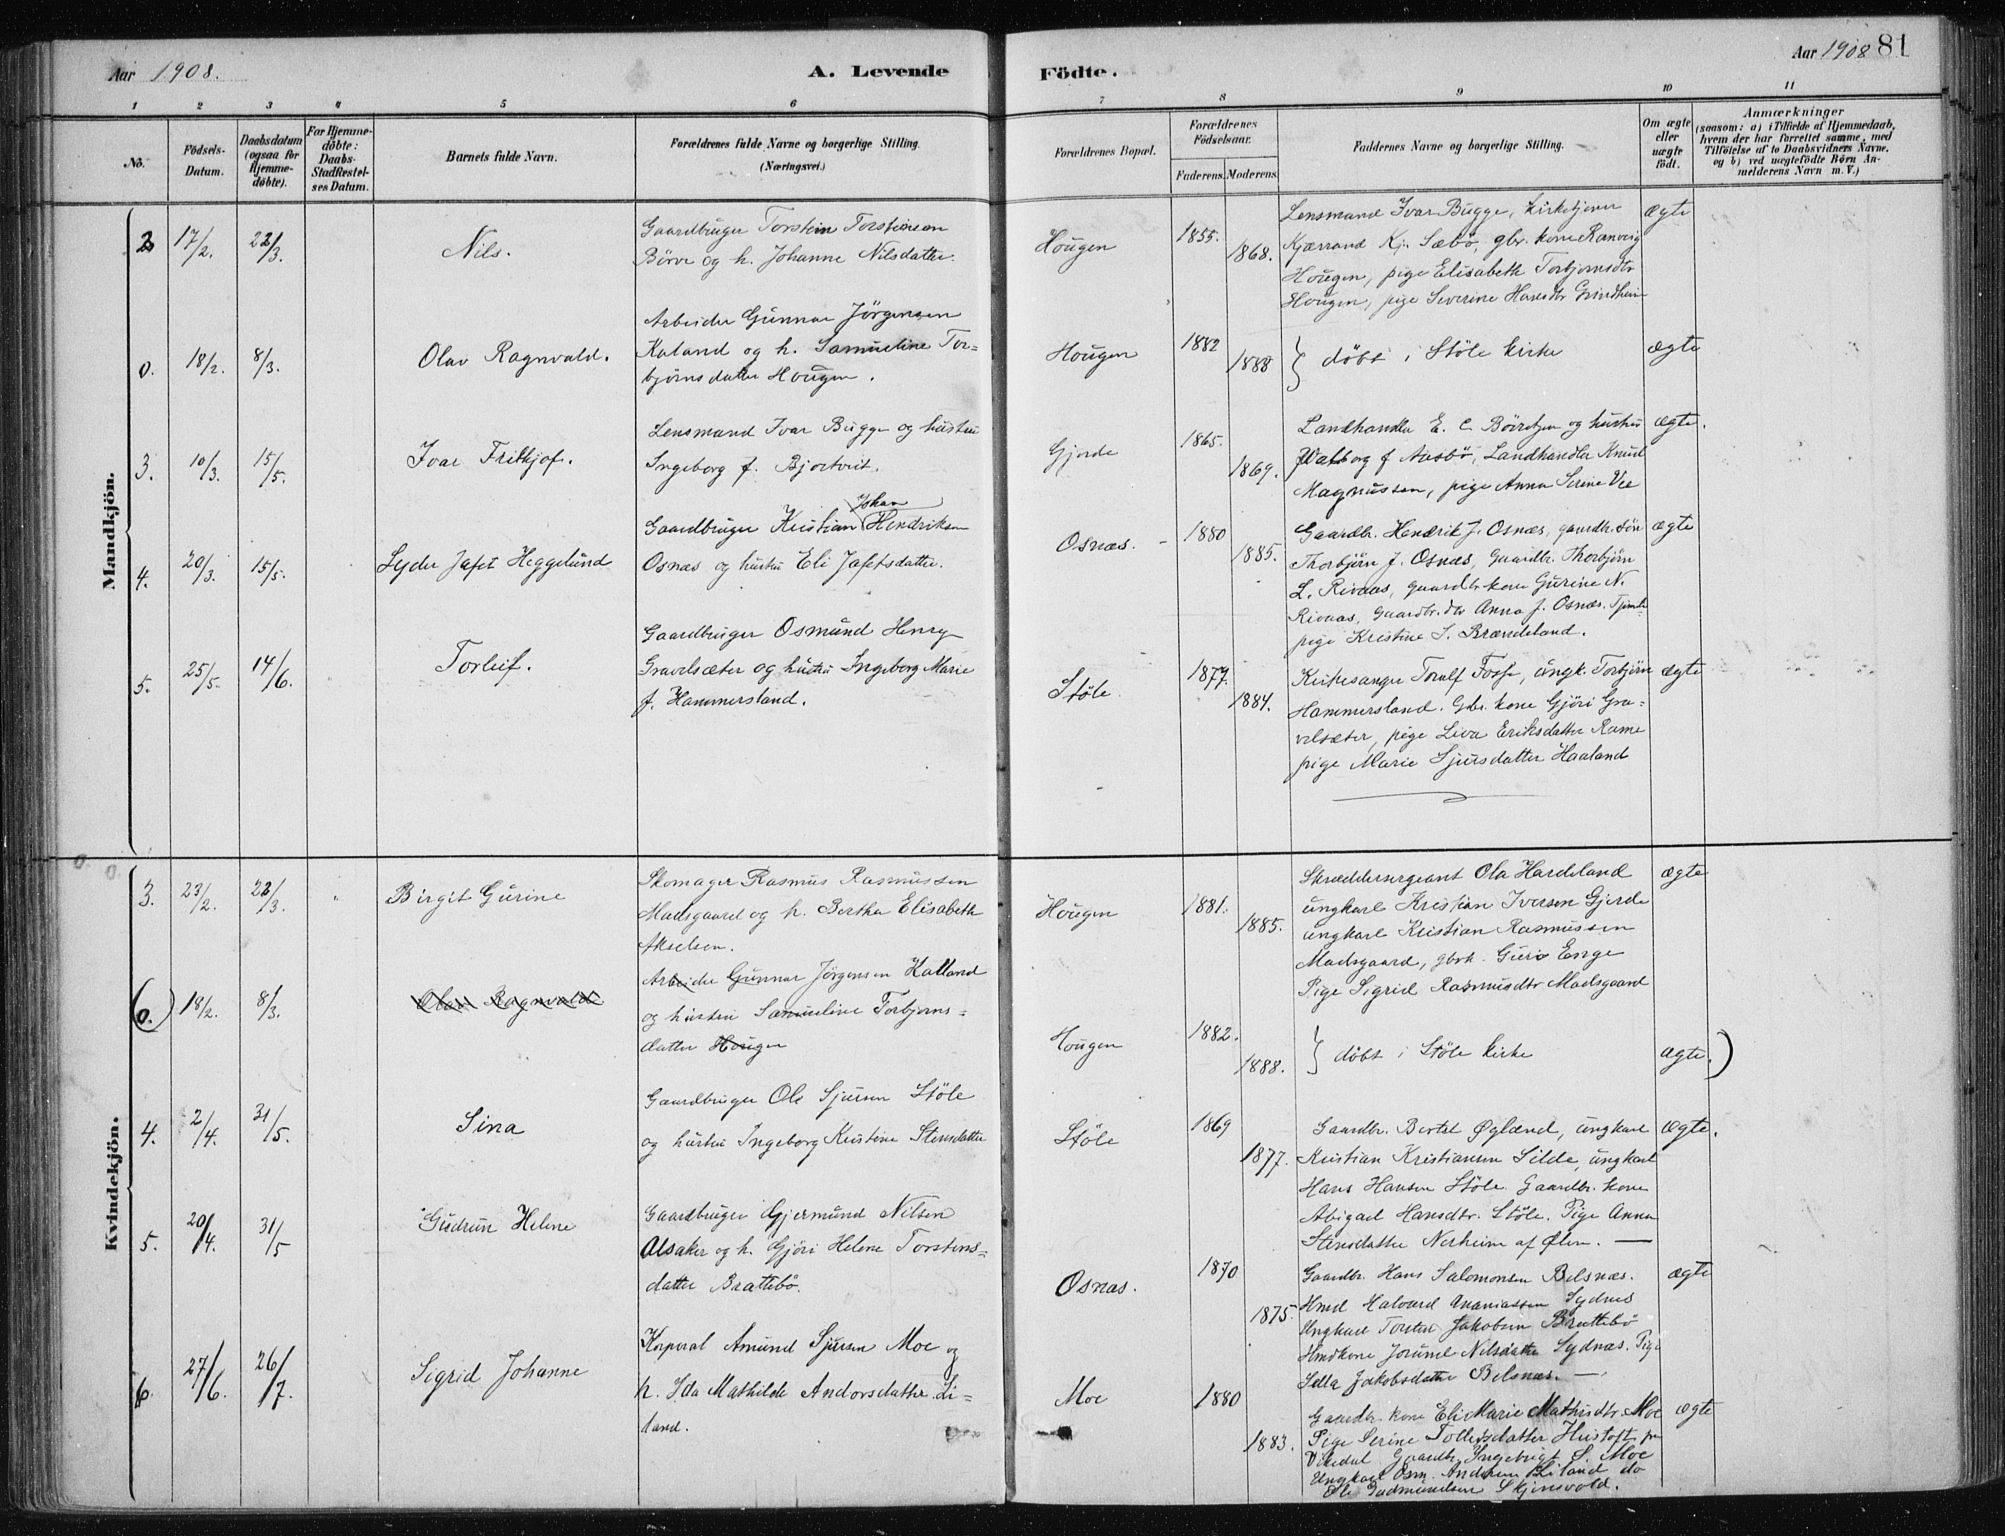 Aar 1908.
A. Levende
Födte.
Aar 1908
81
1 2 3 4 5 6 7 8 9 10 11
No.
Födsels-Datum.
Daabsdatum (ogsaa for Hjemme-döbte).
For Hjemme-döbte: Daabs-Stadfæstel-ses Datum.
Barnets fulde Navn.
Forældrenes fulde Navne og borgerlige Stilling. (Næringsvei.)
Forældrenes Bopæl.
Forældrenes Födselsaar.
Faderens. Moderens.
Faddernes Navne og borgerlige Stilling.
Om ægte eller uægte födt.
Anmærkninger
(saasom: a) i Tilfælde af Hjemmedaab, hvem der har forrettet samme, med Tilföielse af to Daabsvidners Navne. og b) ved uægtefödte Börn Anmelderens Navn m. V.)
Mandkjön.
2 17/2. 22/3. Nils.
Gaardbruger Torstein Torsteinsen
Börve og h. Johanne Nilsdatter.
Hougen 1855. 1868.
Lensmand Ivar Bugge, Kirketjener
Kjærrand Kj. Sæbö, gbr. kone Ranveig
Hougen, pige Elisabeth Torbjornsdtr
Hougen, pige Severine Hansdtr Grindheim
ægte
0. 18/2. 8/3. Olav Ragnvald.
Arbeider Gunnar Jörgensen
Kaland og h. Samueline Tor=
björnsdatter Hougen.
Hougen 1882 1888
} döbt i Stöle Kirke
ægte
3. 10/3. 15/5. Ivar Fritkjof.
Lensmand Ivar Bugge og hustru
Ingeborg f. Bjortveit.
Gjerde 1865. 1869.
Landhandler E. C. Böiretzen og hustru
Valborg f Aasbö, Landhandler Knud
Magnussen, pige Anna Serine Vee
ægte.
4. 20/3. 15/5. Lyder Jafet Heggelund
Johan
Gaardbruger Kristian Hendriksen
Osnæs og hustru Eli Jafetsdatter.
Osnæs. 1880 1885.
Gaardbr. Hendrik J. Osnæs, gaardbr. sön
Thorbjörn J. Osnæs, Gaardbr. Thorbjörn
L. Rivnæs, gaardbr. kone Gurine N.
Rivnæs, Gaardbr. dtr Anna J. Osnæs.
pige Kristine S. Brændeland.
ægte
5. 25/5. 14/6. Torleif.
Gaardbruger Osmund Henry
Gravelsæter og hustru Ingeborg Marie
f. Hammersland.
Stöle. 1877. 1884.
Kirkesanger Torulf Fosse, ungk. Torbjörn
Hammersland. Gbr. kone Gjöri Gra=
velsæter, pige Liva Eriksdatter Rame
pige Marie Sjursdatter Haaland
ægte
Kvindekjön.
3. 23/2. 22/3. Birgit Gurine
Skomager Rasmus Rasmussen
Madsgaard og h. Bertha Elisabeth
Akselsen.
Hougen 1881. 1885.
Skræddersergeant Ola Hardeland
ungkarl Kristian Iversen Gjerde
ungkarl Kristian Rasmussen
Madsgaard, gbrk. Guro Enge
Pige Sigrid Rasmusdtr Madsgaard
ægte
(0.) 18/2. 8/3. Olav Ragnvald
Arbeider Gunnar Jörgensen Kalland
og hustru Samueline Torbjorns=
datter Hougen
Hougen 1882. 1888.
} döbt i Stöle Kirke
ægte.)
4. 2/4. 31/5. Sina
Gaardbruger Ole Sjursen Stöle
og hustru Ingeborg Kristine Stensdatter
Stöle 1869 1877.
Gaardbr. Bertel Öglænd, ungkarl
Kristian Kristiansen Silde, ungkarl
Hans Hansen Stöle. Gaardbr. kone
Abigael Hansdtr. Stöle. Pige Anna
Stensdatter Nerheim af Ölen.
ægte.
5. 20/4. 31/5 Gudrun Helene
Gaardbruger Gjermund Nilsen
Alsaker og h. Gjöri Helene Torstens=
datter Brattebö.
Osnæs. 1870 1875
Gaardbr. Hans Salomonsen Belsnæs.
Hmd Halvard Ananiassen Sydnes
Ungkarl Torstein Jakobsen Brattebö
Hmdkone Jorunel Nilsdatter Sydnæs. Pige
Sella Jakobsdatter Belsnæs.
ægte
6. 27/6. 26/7. Sigrid Johanne
Korporal Amund Sjursen Moe og
h. Ida Mathilde Andorsdatter Li=
land.
Moe 1880 1883.
Gaardbr. kone Eli Marie Mathisdtr. Moe
Pige Serine Tollefsdatter Hustoft fra
Vikedal Gaardbr. Ingebrigt S. Moe
Ungkarl Osm. Andersen Liland do
Ole Gudmundsen Skjensvold.
ægte